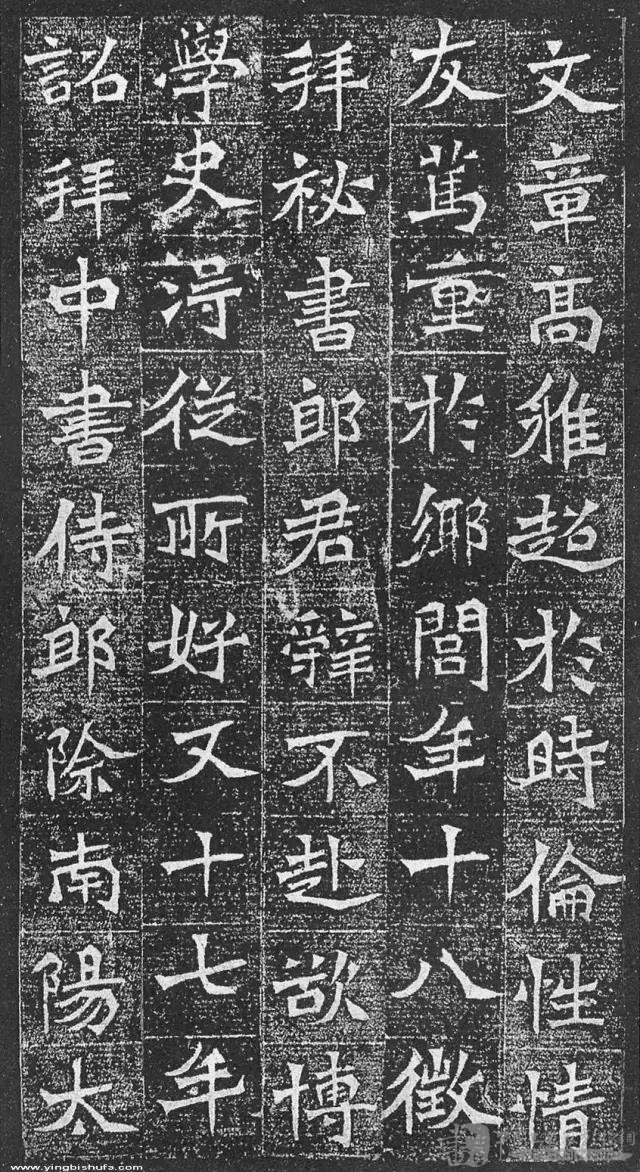 文章高雅超於時倫性情
友篤重於鄉閭年十八徵
拜祕書郎君辭不赴欲博
學史淂從所好又十七年
詔拜中書侍郎除南陽太
www.yingbishufa.com